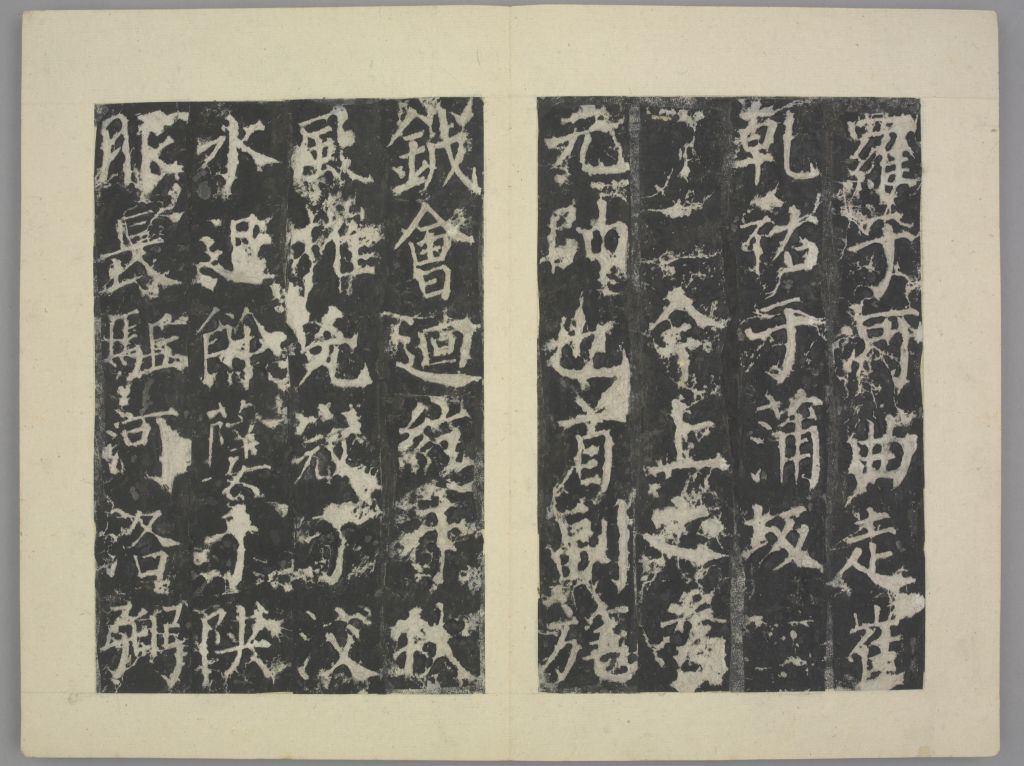 羅于河曲走崔
乾祐于蒲坂
今上之為
元帥也首副旄
鉞會迴紇于扶
風摧兇寇于汶
水餘孽于陝
服長驅河洛弼